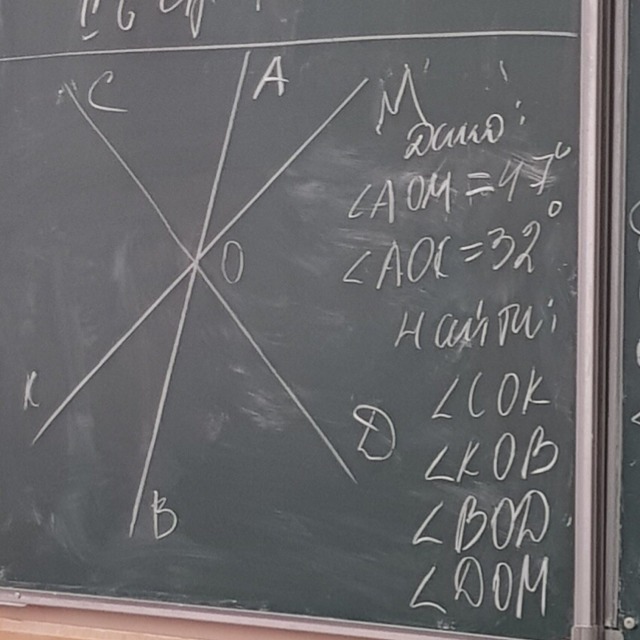 C
A
M
O
K
D
B
Дано:
∠AOM=47°
∠AOC=32°
Найти:
∠COK
∠KOB
∠BOD
∠DOM